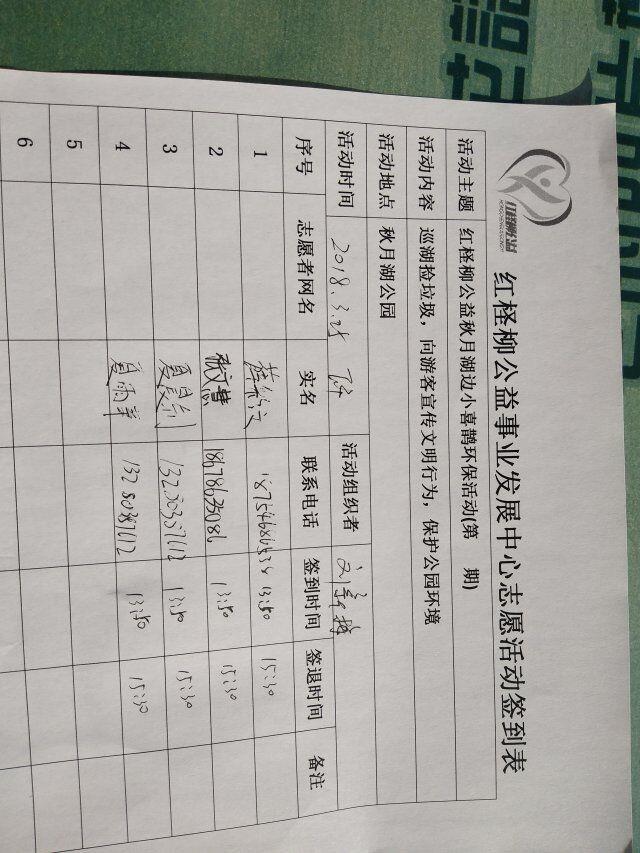 红柽柳公益
HONGCHENGLIUGONGYI
红柽柳公益事业发展中心志愿活动签到表
活动主题 红柽柳公益秋月湖边小喜鹊环保活动(第 期)
活动内容 巡湖捡垃圾，向游客宣传文明行为，保护公园环境
活动地点 秋月湖公园
活动时间 2018.3.25 下午 活动组织者
序号 志愿者网名 实名 联系电话 签到时间 签退时间 备注
1 18754686538 13:50 15:30
2 张文慧 18678635086 13:50 15:30
3 13:50 15:30
4 夏雨辛 13280387612 13:50 15:30
5
6